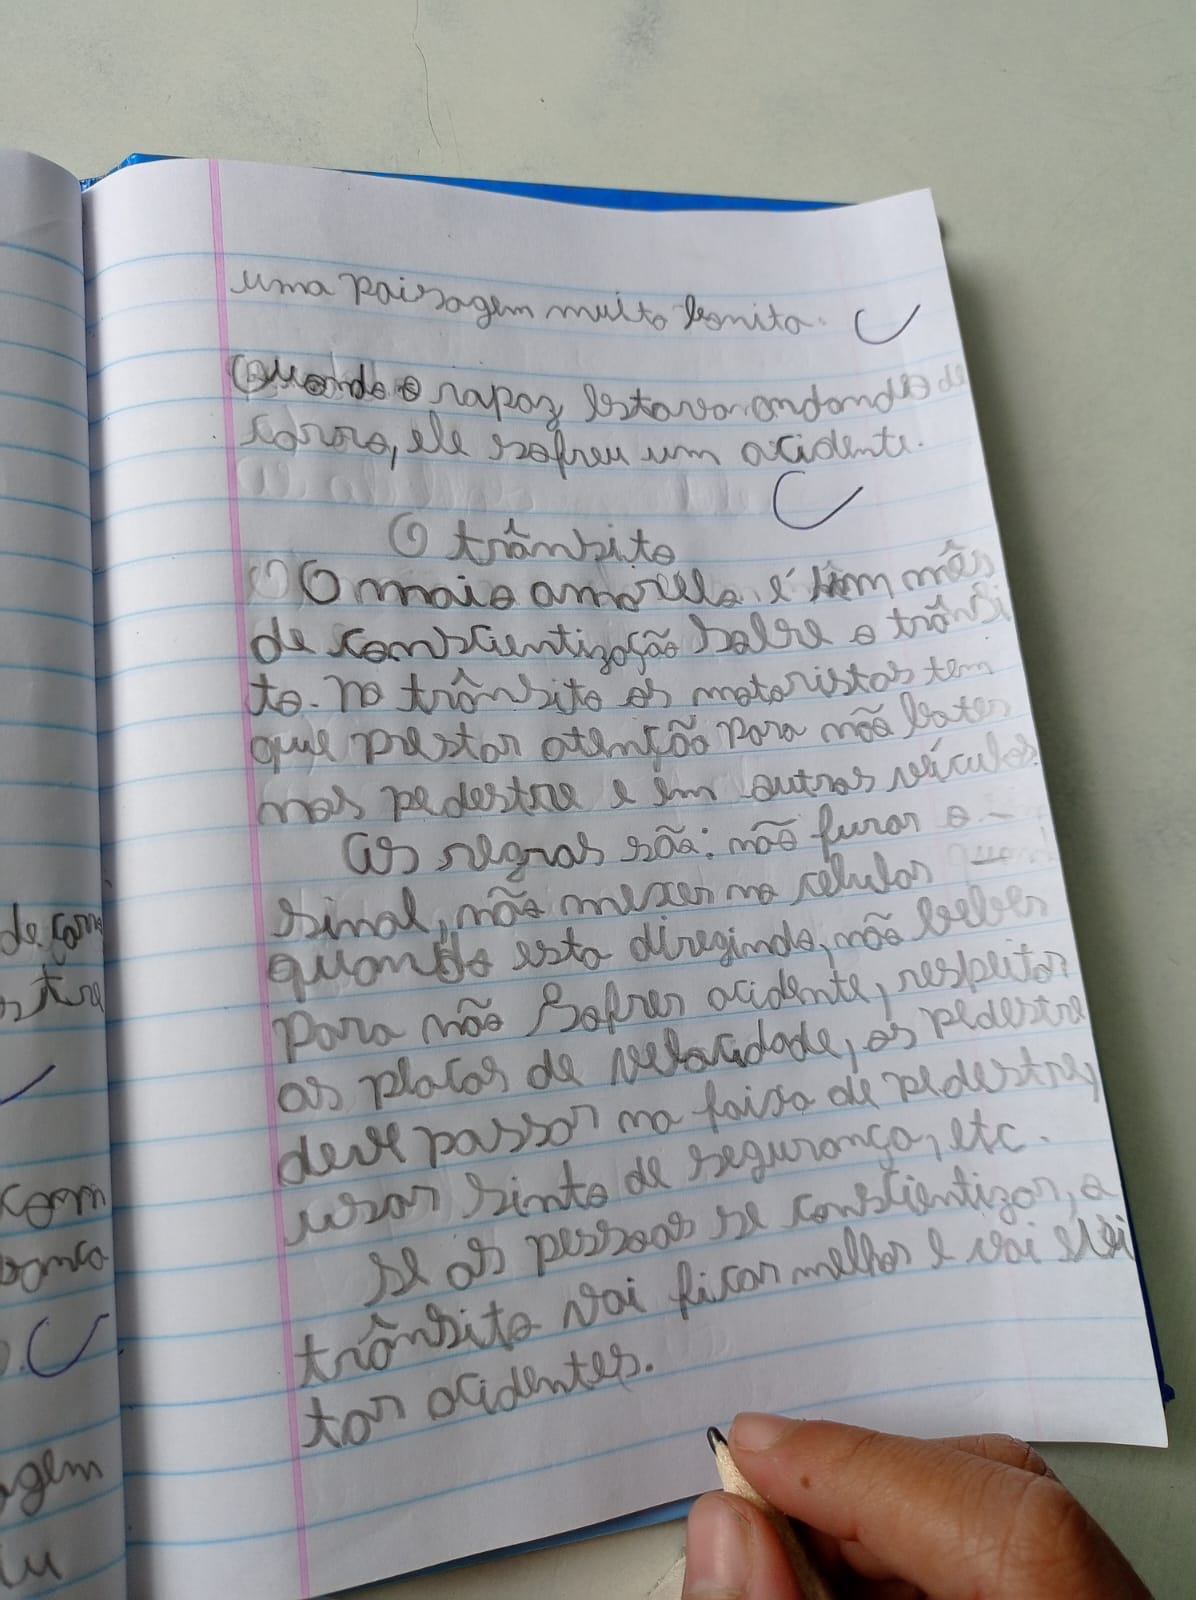 uma paisagem muito bonita.
Quando o rapaz estava andando de
carro, ele sofreu um acidente.
O trânsito
O maio amarelo, é um mês
de conscientização sobre o trânsi
to. no trânsito os motoristas tem
que prestar atenção para não bater
nos pedestre e em outros veículos.
As regras são: não furar o
sinal, não mexer no celular
quando esta diregindo, não beber
para não sofrer acidente, respeitar
as placas de velocidade, os pedestre
deve passar na faixa de pedestre,
usar sinto de segurança, etc.
se as pessoas se conscientizar, o
trânsito vai ficar melhor e vai evi
tar acidentes.
de carro
tre
com
agem